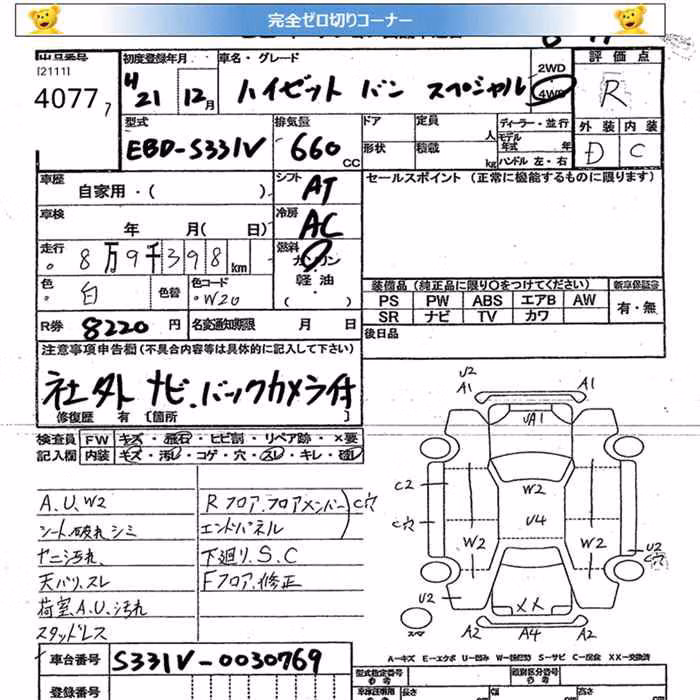 完全ゼロ切りコーナー
出品番号
[2111]
4077 7
初度登録年月
H21 12月
車名・グレード
ハイゼット バン スペシャル
2WD
4WD
評価点
R
外装 内装
D C
型式
EBD-S331V
排気量
660 CC
ドア
定員 人
形状
積載 kg
ディーラー・並行
モデル年式 年
ハンドル 左・右
車歴
自家用・( )
シフト
AT
セールスポイント (正常に機能するものに限ります)
車検
年 月( 日)
冷房
AC
走行
8万9千398 km
燃料
ガソリン
軽油
・( )
色
白
色替
色コード
W20
装備品(純正品に限り○をつけてください)
新車保証書
PS PW ABS エアB AW
SR ナビ TV カワ
有・無
R券 8220円
名変通知期限 月 日
後日品
注意事項申告欄(不具合内容等は具体的に記入して下さい)
社外ナビ、バックカメラ付
修復歴 有 〔箇所
検査員記入欄
FW キズ・飛石・ヒビ割・リペア跡・×要
内装 キズ・汚レ・コゲ・穴・スレ・キレ・破レ
A.U.W2
シート破れシミ
ヤニ汚れ
天バリ、スレ
荷室.A.U.汚れ
スタッドレス
Rフロア.フロアメンバー
エンドパネル
C穴
下廻り.S.C
Fフロア.修正
U2
A1
A1
UA1
C2
W2
C穴
U4
W2
W2
U2
C穴
U2
XX
A2
A4
A2
A-キズ E-エクボ U-凹み W-波凹凸 S-サビ C-腐食 XX-交換済
車台番号
S331V-0030769
登録番号
型式指定番号
類別区分番号
長さ
幅
高さ